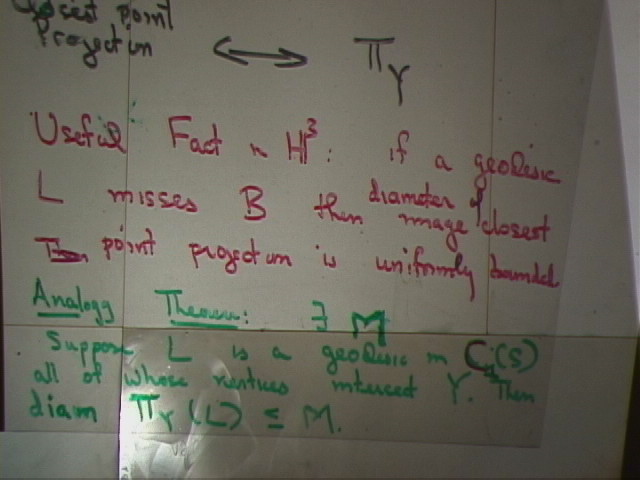 Closest point
Projection ⟷ π_Y
Useful Fact in H³: if a geodesic
L misses B then diameter of image closest
point projection is uniformly bounded
Analogy Theorem: ∃ M
Suppose L is a geodesic in C_1(S)
all of whose vertices intersect Y. Then
diam π_Y(L) ≤ M.